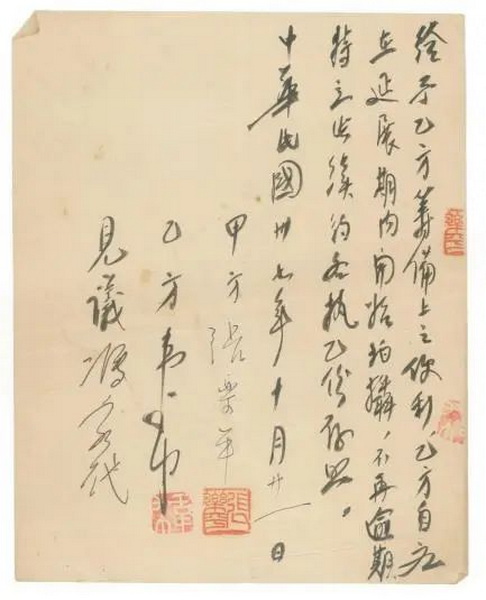 給予乙方籌備上之便利，乙方自應
在延展期內開始拍攝，不再逾期
特立此續約各執乙份存照。
中華民國卅七年十月廿一日
甲方 張樂平
乙方 韋布
見議 馮亦代